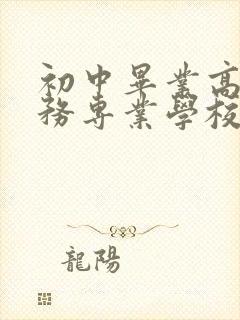 初中畢業高
務專業學校
龍陽